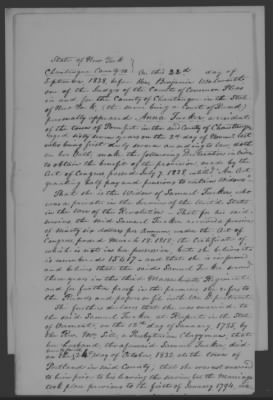 State of New York
Chautauque County ss. On this 22nd day of
September 1838, before Hon. Benjamin
one of the Judges of the Court of Common Pleas
in and for the County of Chautauque in the State
of New York (the same being a Court of Record)
personally appeared Anna Tucker a resident
of the town of Pomfret in the said County of Chautauque
aged sixty seven years on the 2nd day of last
who being first duly sworn according to law doth
on her oath, make the following Declaration in order
to obtain the benefit of the provision made by the
Act of Congress passed July 7, 1838 entitled "An Act
granting half pay and pensions to certain widows"
That she is the widow of Samuel Tucker, who
was a private in the service of the United States
in the War of the Revolution - That for his said
service the said Samuel Tucker received a pension
of Ninety six dollars per annum, under the Act of
Congress passed March 18, 1818, the certificate of
which is not in her possession, but she believes it
is numbered 15417 - and that she is informed
and believes that the said Samuel Tucker served
in the Massachusetts Regiment
and for further proof in the premises she refers to
the Records and papers on file with the Department
She further declares that she was married to
the said Samuel Tucker at Rupert in the State
of Vermont, on the 12th day of January 1785, by
the Rev. Mr. Sill, a Presbyterian Clergyman, that
her husband, the aforesaid Samuel Tucker died
on the day of October 1832 at the town of
Portland in said County; that she was not married
to him prior to his leaving the service but the marriage
took place previous to the first of January 1794,